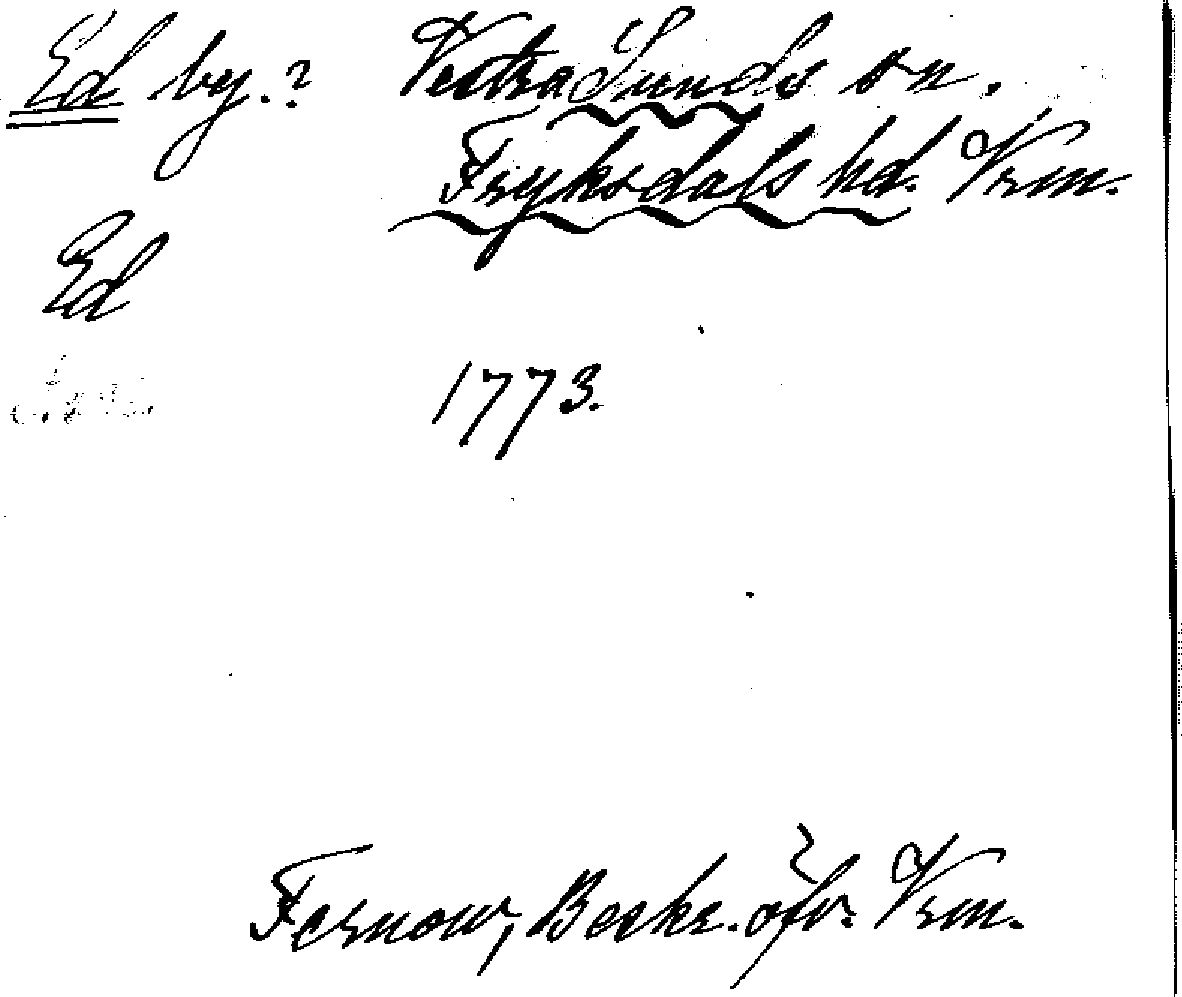 Ed by.? Vestra Sunds sn.
Fryksdals hd. Vrm.
Ed
1773.
Fernow, Beskr. öfv. Vrm.